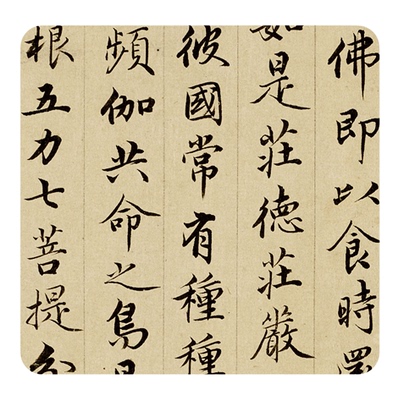 佛即以食時
如是莊德莊嚴
彼國常有種種
頻伽共命之鳥是
根五力七菩提分